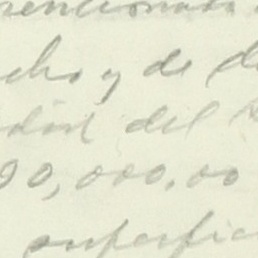 mencionad
cho y de d
dad del
90,000.00
superficie